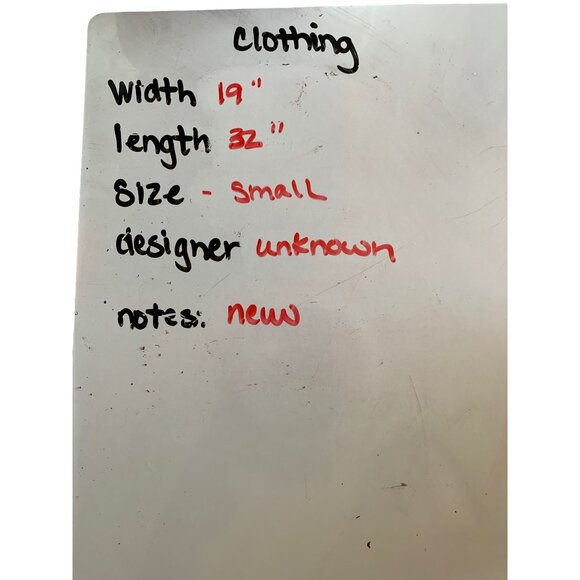 Clothing
Width 19"
length 32"
Size - Small
designer unknown
notes: new